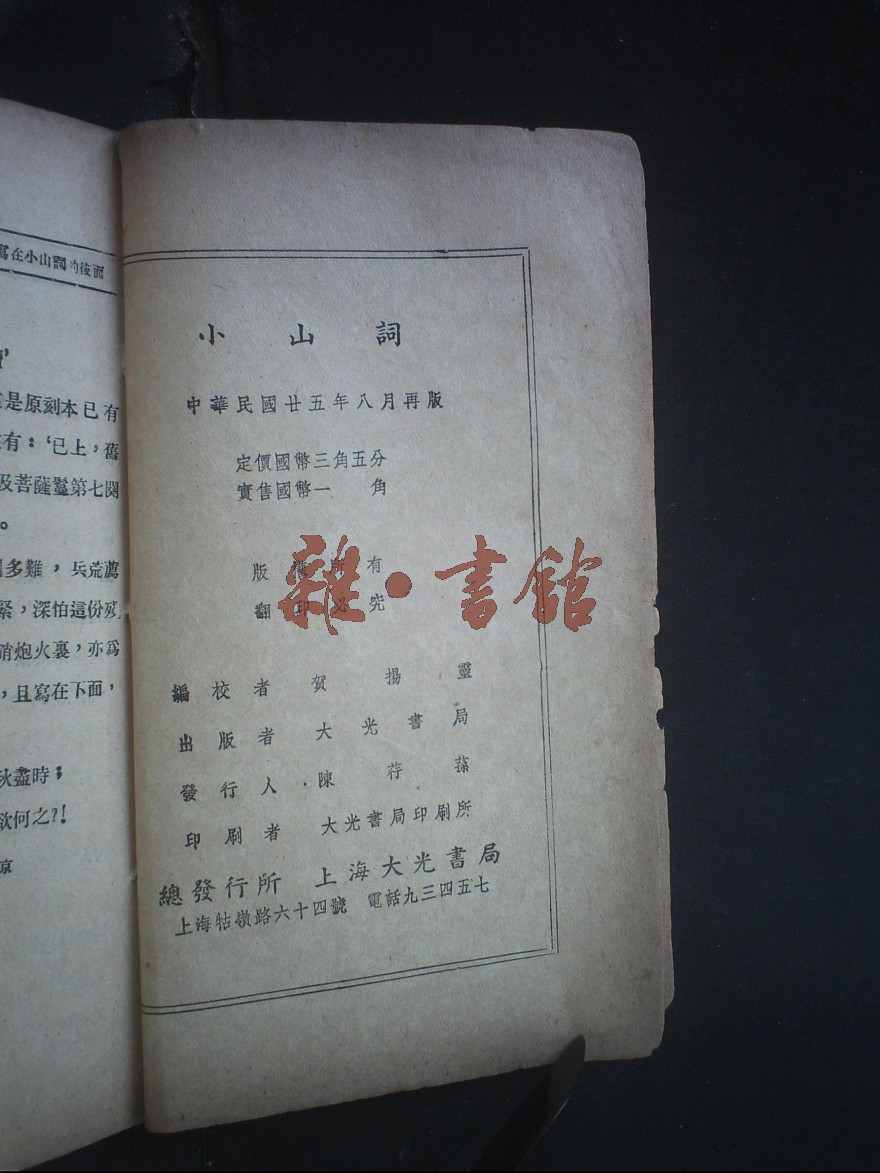 寫在小山詞的後面
是原刻本已有
有：‘已上，舊
及菩薩鬘第七闋
。
多難，兵荒薦
緊，深怕這份
硝炮火裏，亦爲
，且寫在下面，
秋盡時；
欲何之?!
京
小山詞
中華民國廿五年八月再版
定價國幣三角五分
實售國幣一角
版權所有
翻印必究
雜·書館
編校者 賀揚靈
出版者 大光書局
發行人 陳荇蓀
印刷者 大光書局印刷所
總發行所 上海大光書局
上海牯嶺路六十四號 電話九三四五七